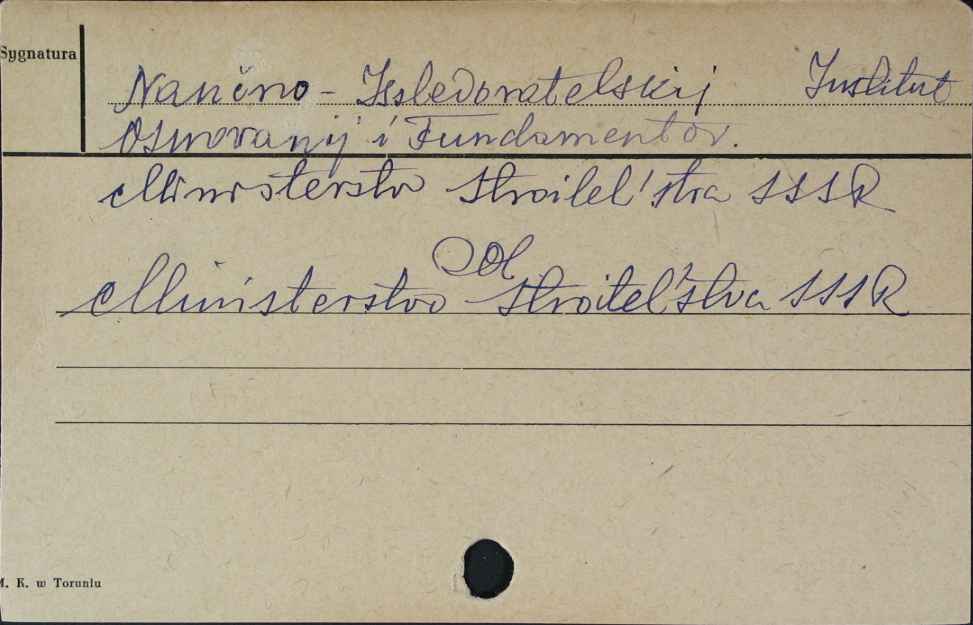 Sygnatura
Naučno-Issledovatelskij Institut
Osnovanij i Fundamentov.
Ministerstvo Stroitel'stva SSSR
Ministerstvo Stroitel'stva SSSR
M. K. w Toruniu